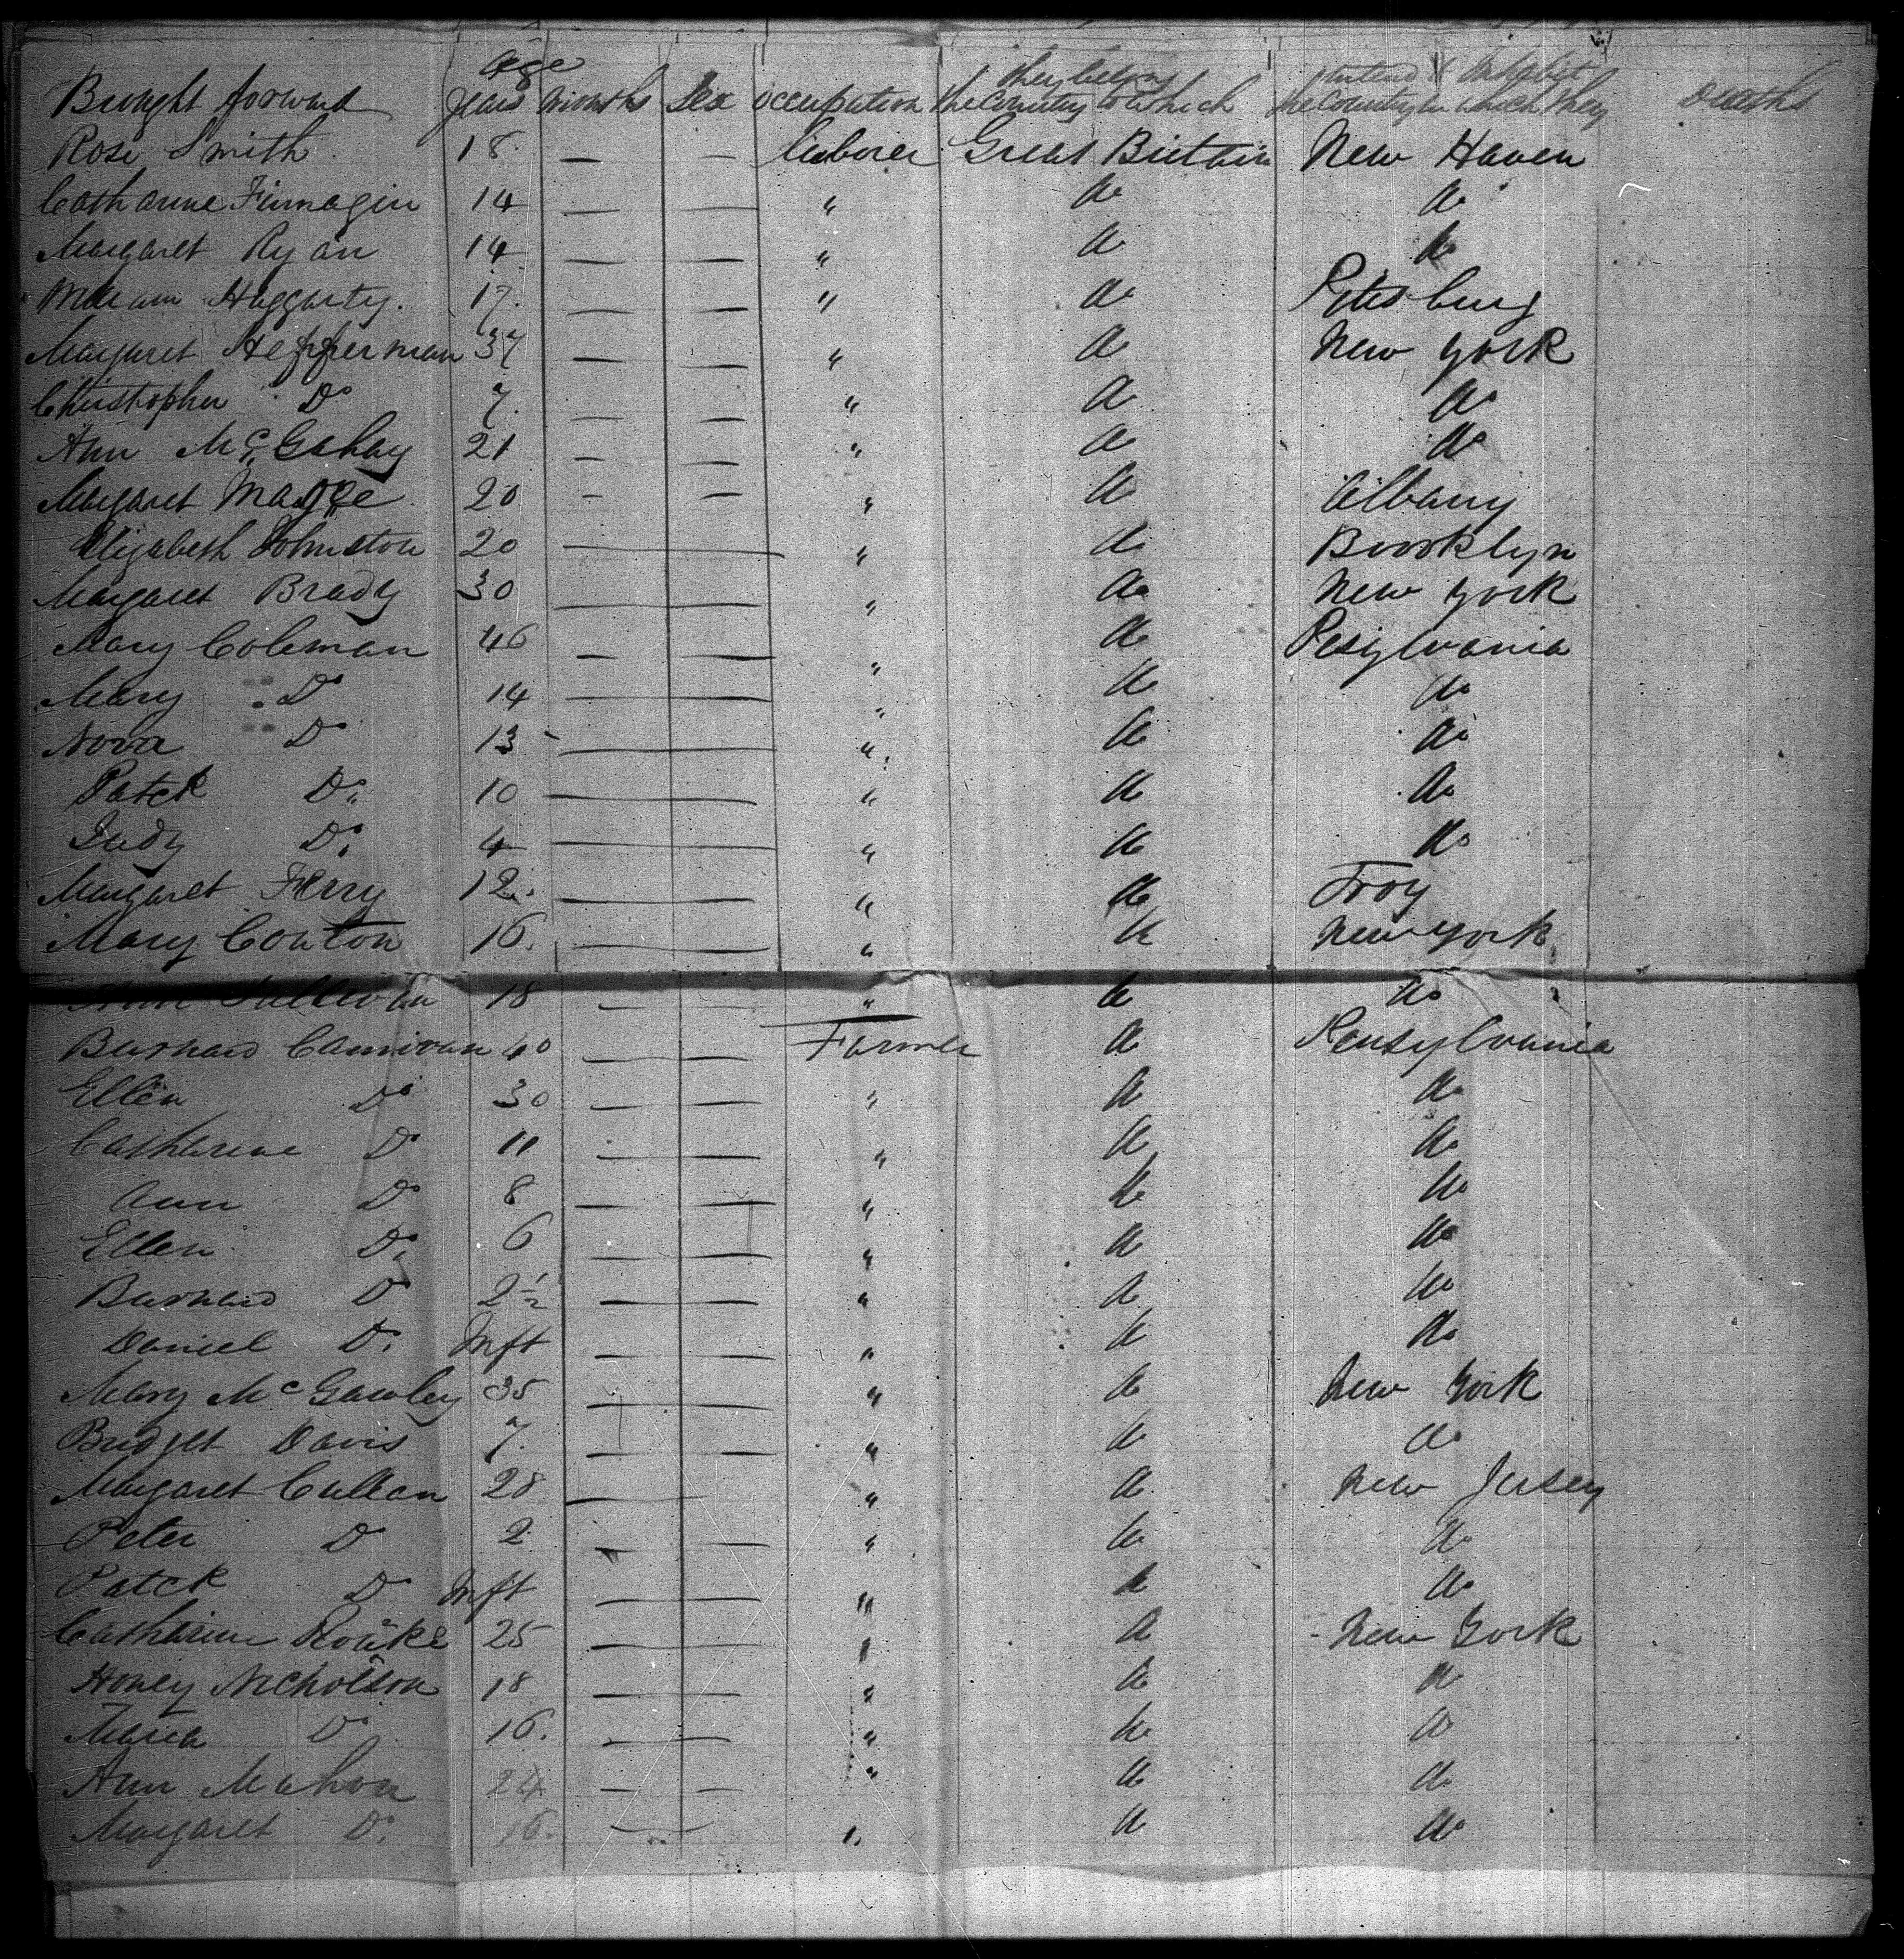 Age they belong intend to Inhabit
Brought forward years months Sex occupation the Country to which the Country in which they Deaths
Rose Smith 18 — — Laborer Great Brittain New Haven
Catharine Finnagin 14 — — " do do
Margaret Ryan 14 — — " do do
William Haggarty. 17. — — " do Petesburg
Margaret Hefferman 37 — — " do New York
Christopher Do 7. — — " do do
Ann McGahay 21 — — " do do
Margaret Magee 20 — — " do Albany
Elizabeth Johnston 20 — — " do Brooklyn
Margaret Brady 30 — — " do New York
Mary Coleman 46 — — " do Pesylvania
Mary Do 14 — — " do do
Nora Do 13 — — " do do
Patck Do 10 — — " do do
Judy Do 4 — — " do do
Margaret Ferry 12. — — " do Troy
Mary Conton 16. — — " do New York
Ann Sullivan 18 — — " do do
Barnard Cannivan 40 — — Farmer do Pensylvania
Ellen Do 30 — — " do do
Catharine Do 11 — — " do do
Ann Do 8 — — " do do
Ellen Do 6 — — " do do
Barnard Do 2½ — — " do do
Daniel Do Inft — — " do do
Mary McGawley 35 — — " do New York
Bridget Davis 7. — — " do do
Margaret Cullan 28 — — " do New Jersey
Peter Do 2 — — " do do
Patck Do Inft — — " do do
Catharine Rourke 25 — — " do New York
Honey Nicholson 18 — — " do do
Maria Do 16. — — " do do
Ann Mahon 24 — — " do do
Margaret Do 16. — — " do do